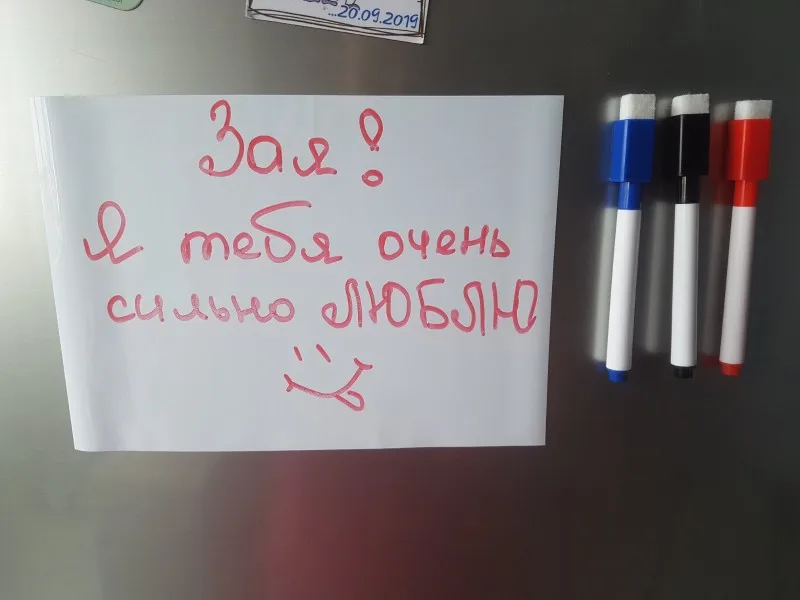 ...20.09.2019
Зая!
Я тебя очень
сильно ЛЮБЛЮ